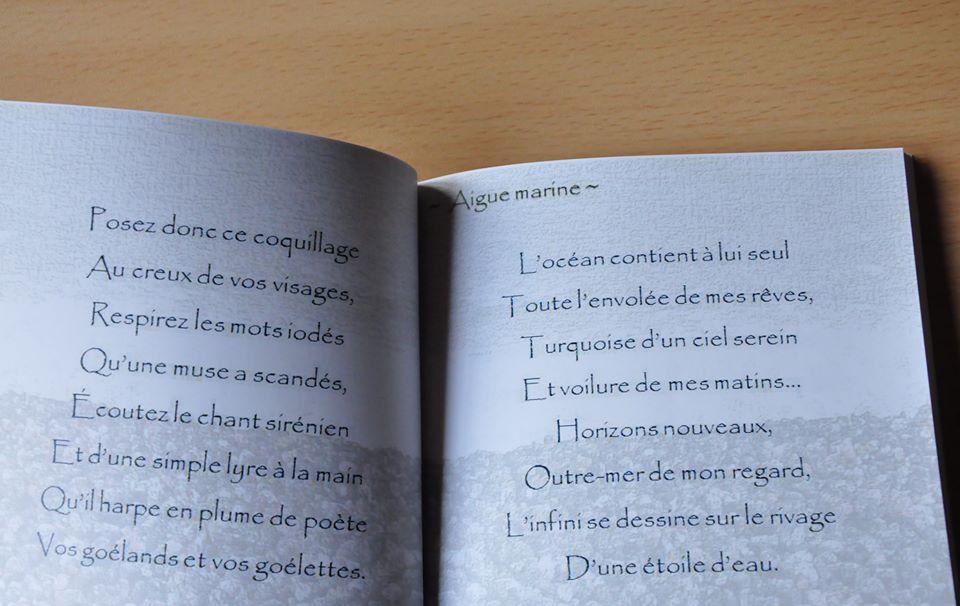 Posez donc ce coquillage
Au creux de vos visages,
Respirez les mots iodés
Qu'une muse a scandés,
Écoutez le chant sirénien
Et d'une simple lyre à la main
Qu'il harpe en plume de poète
Vos goélands et vos goélettes.
~ Aigue marine ~
L'océan contient à lui seul
Toute l'envolée de mes rêves,
Turquoise d'un ciel serein
Et voilure de mes matins...
Horizons nouveaux,
Outre-mer de mon regard,
L'infini se dessine sur le rivage
D'une étoile d'eau.